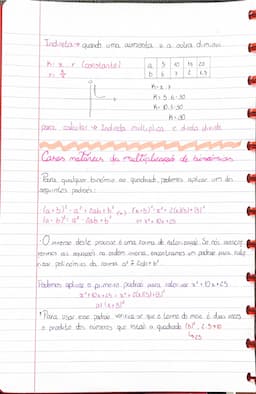 Indireta → quando uma aumenta e a outra diminui
K = x · y (constante)
a 5 10 15 20
b 6 3 2 1,5
K = x · y
K = 5 · 6 = 30
K = 10 · 3 = 30
K = 30
para calcular → Indireta multiplica e direta divide
Casos notáveis da multiplicação de binómios
Para qualquer binómio ao quadrado, podemos aplicar um dos
seguintes padrões:
(a+b)² = a² + 2ab + b²
(a-b)² = a² - 2ab + b²
O inverso deste processo é uma forma de
as equações na ordem inversa, encontramos um padrão para
polinómios da forma a² + 2ab + b²
Podemos aplicar o primeiro padrão para x² + 10x + 25
x² + 10x + 25 = x² + 2(x)(5) + (5)²
= (x+5)²
Para usar esse padrão, verifica-se que o termo do meio é duas vezes
o produto dos números que estão a quadrado (5)², 2·5=10
↳ 25